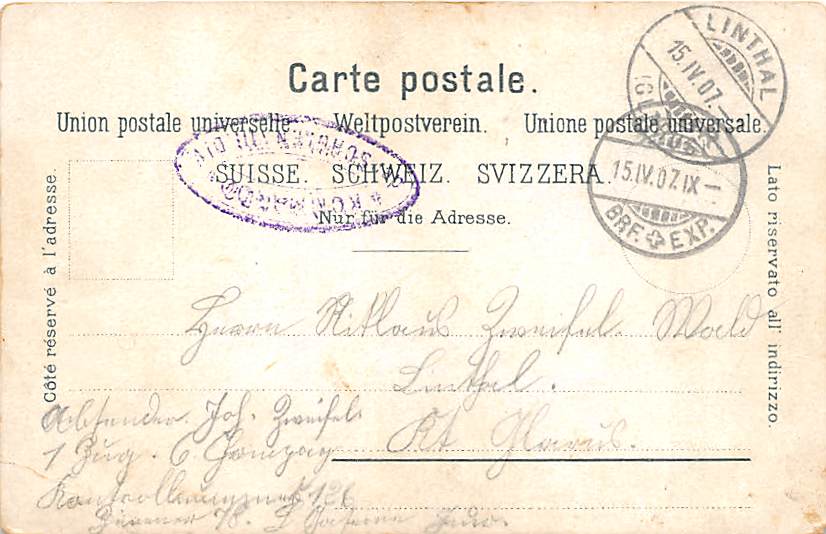 Carte postale.
Union postale universelle. Weltpostverein. Unione postale universale.
SUISSE. SCHWEIZ. SVIZZERA.
Nur für die Adresse.
Côté réservé à l'adresse.
Lato riservato all' indirizzo.
LINTHAL
15.IV.07.
15.IV.07.IX—
BRF. EXP.
Herrn Niklaus Zweifel. Wald
Linthal.
Kt Glarus.
Absender. Joh. Zweifel.
1 Zug. 6 Compagn
Kontrollnummer 126